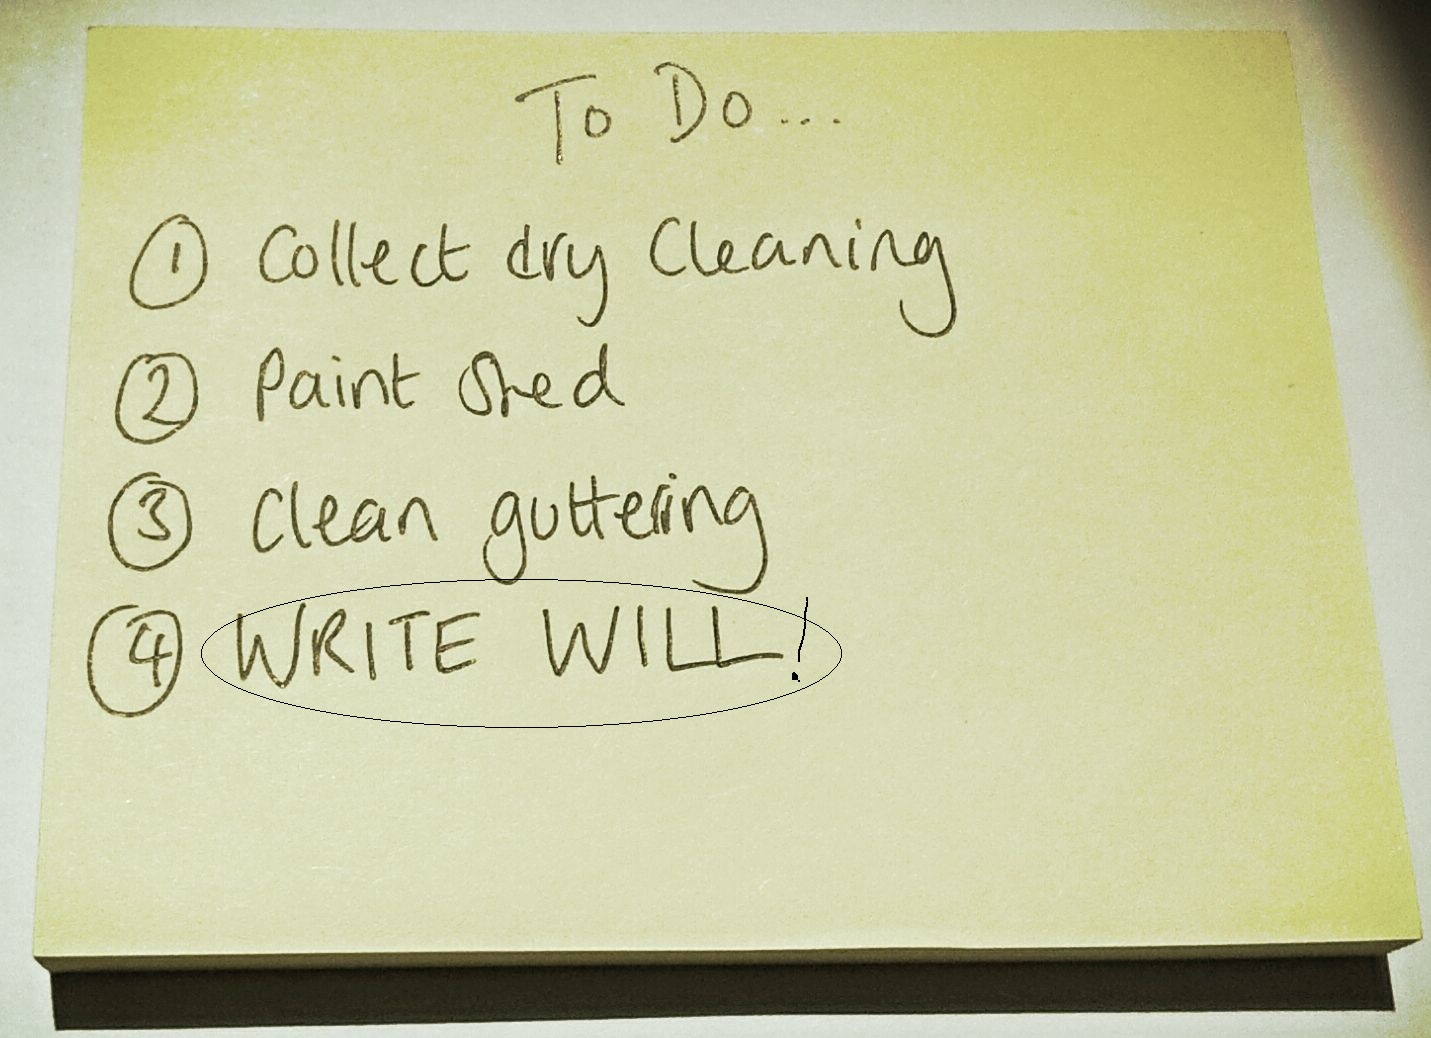 To Do...
1 Collect dry Cleaning
2 Paint Shed
3 Clean guttering
4 WRITE WILL!